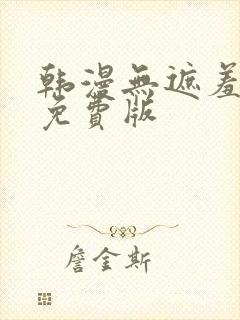 韩漫無遮羞
免費版
詹金斯